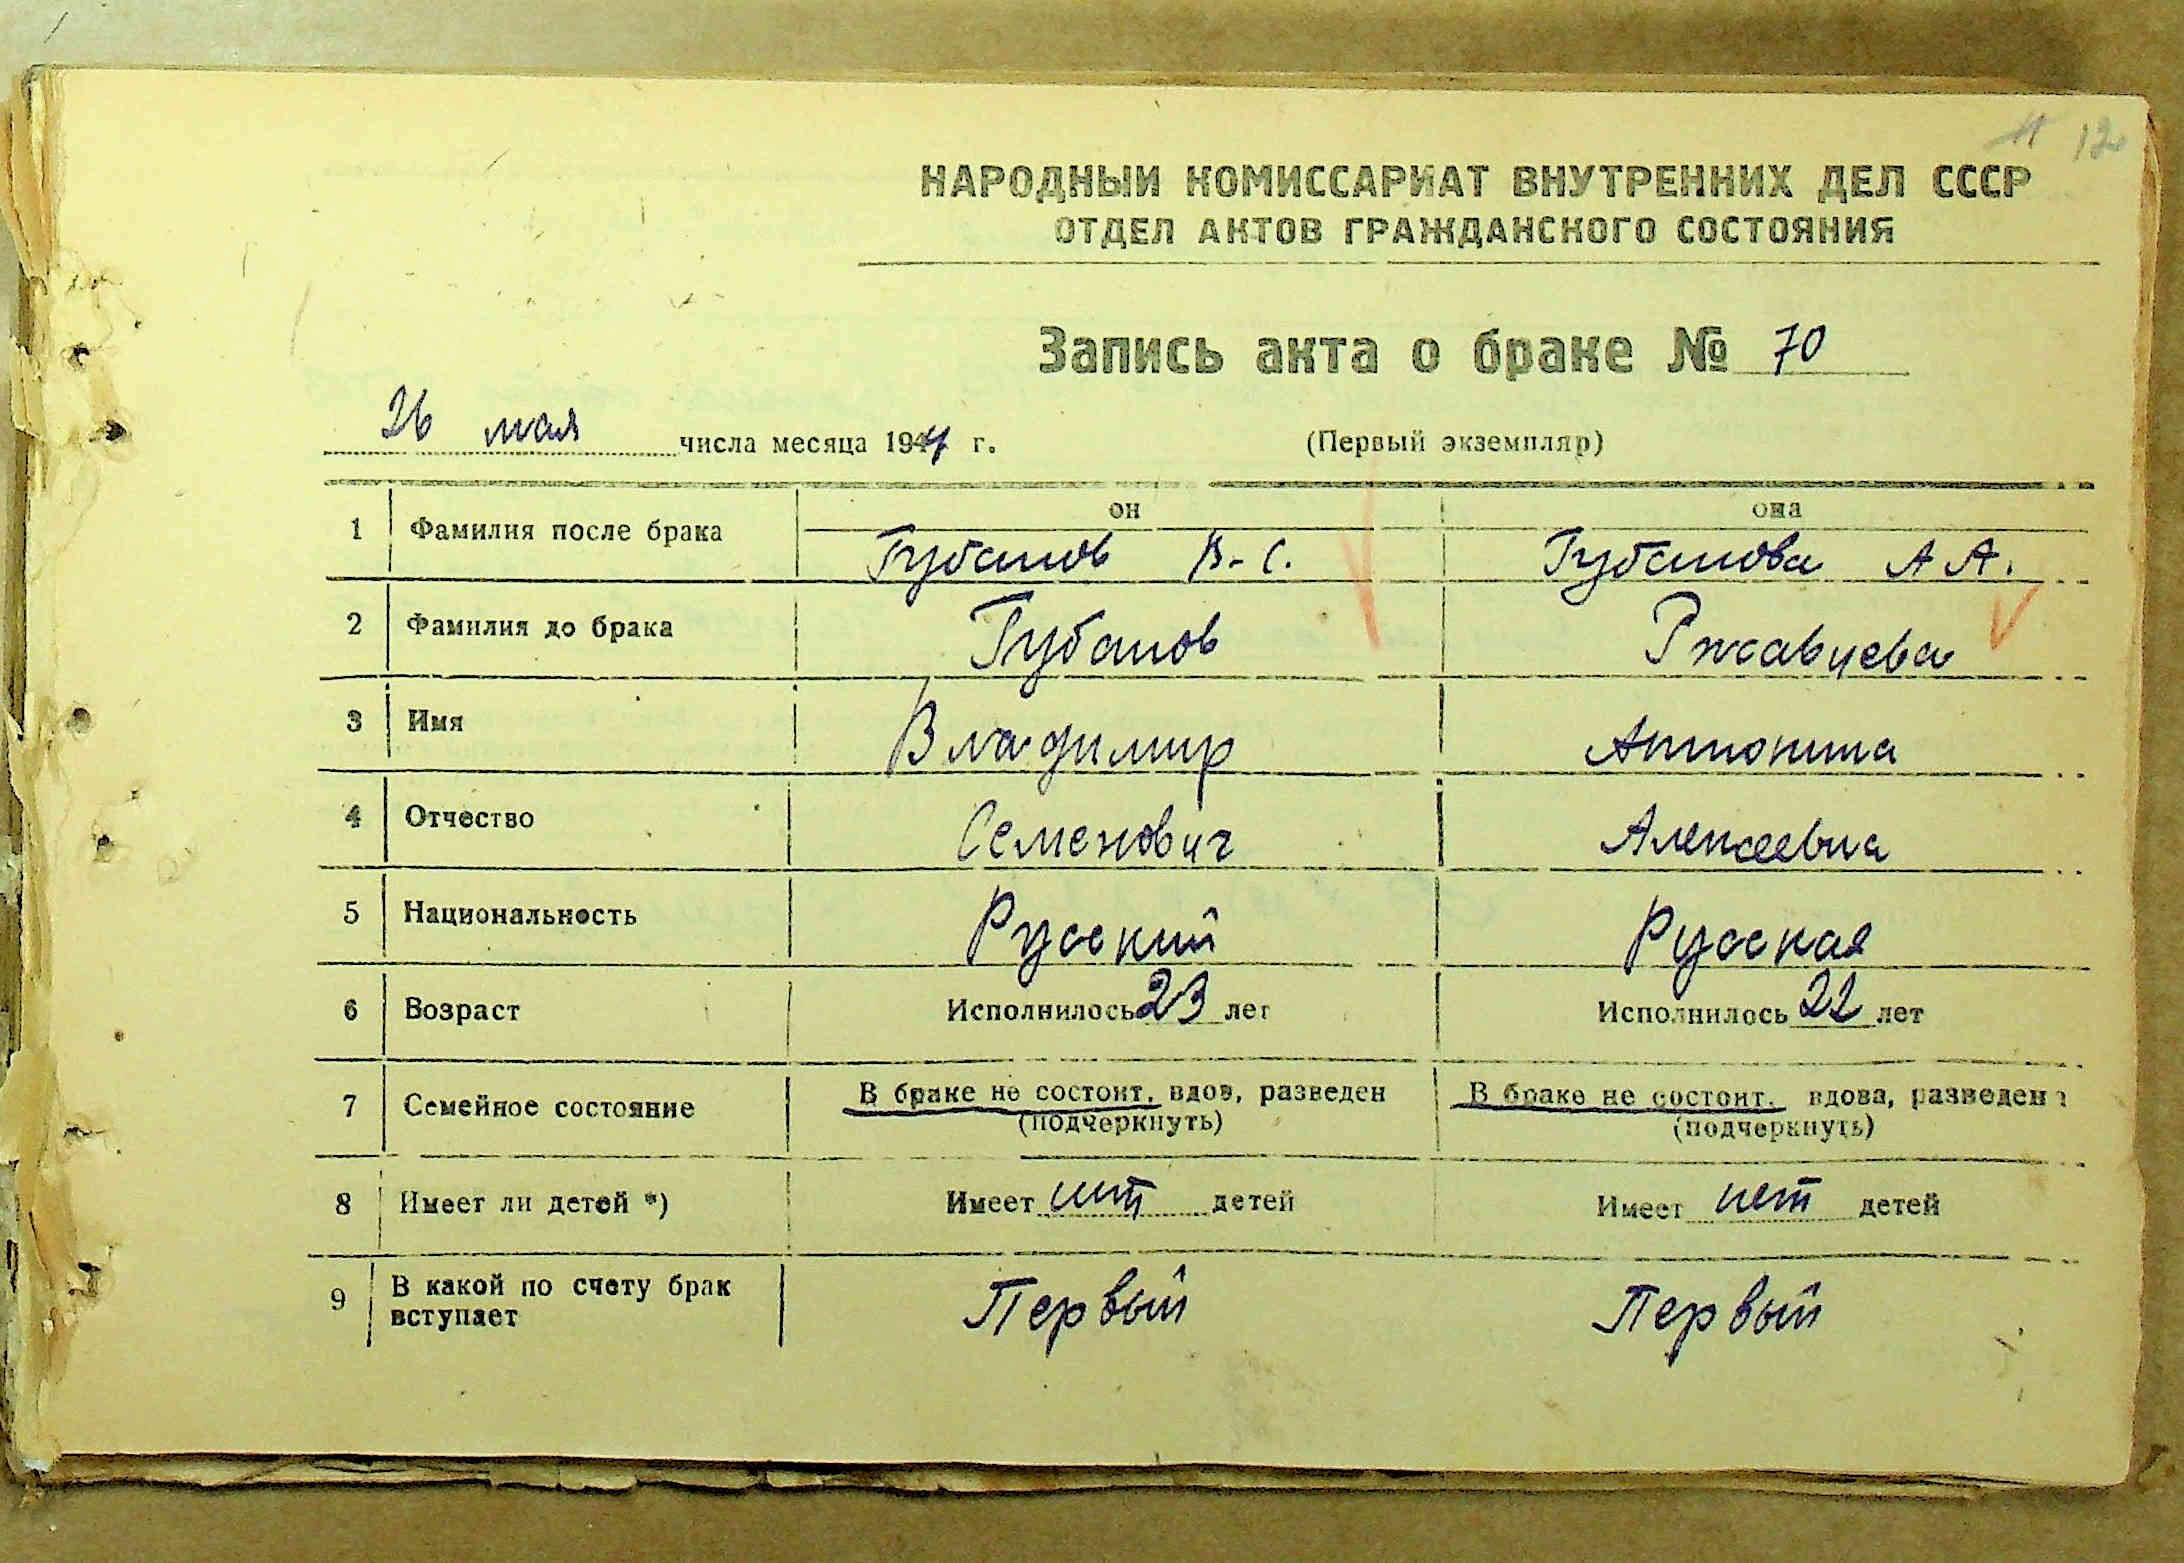 11 12
НАРОДНЫЙ КОМИССАРИАТ ВНУТРЕННИХ ДЕЛ СССР
ОТДЕЛ АКТОВ ГРАЖДАНСКОГО СОСТОЯНИЯ
Запись акта о браке № 70
26 мая числа месяца 1947 г. (Первый экземпляр)
он она
1 Фамилия после брака Губанов В. С. Губанова А А.
2 Фамилия до брака Губанов Ржавцева
3 Имя Владимир Антонина
4 Отчество Семенович Алексеевна
5 Национальность Русский Русская
6 Возраст Исполнилось 23 лет Исполнилось 22 лет
7 Семейное состояние В браке не состоит, вдов, разведен В браке не состоит, вдова, разведена
(подчеркнуть) (подчеркнуть)
8 Имеет ли детей *) Имеет нет детей Имеет нет детей
9 В какой по счету брак Первый Первый
вступает